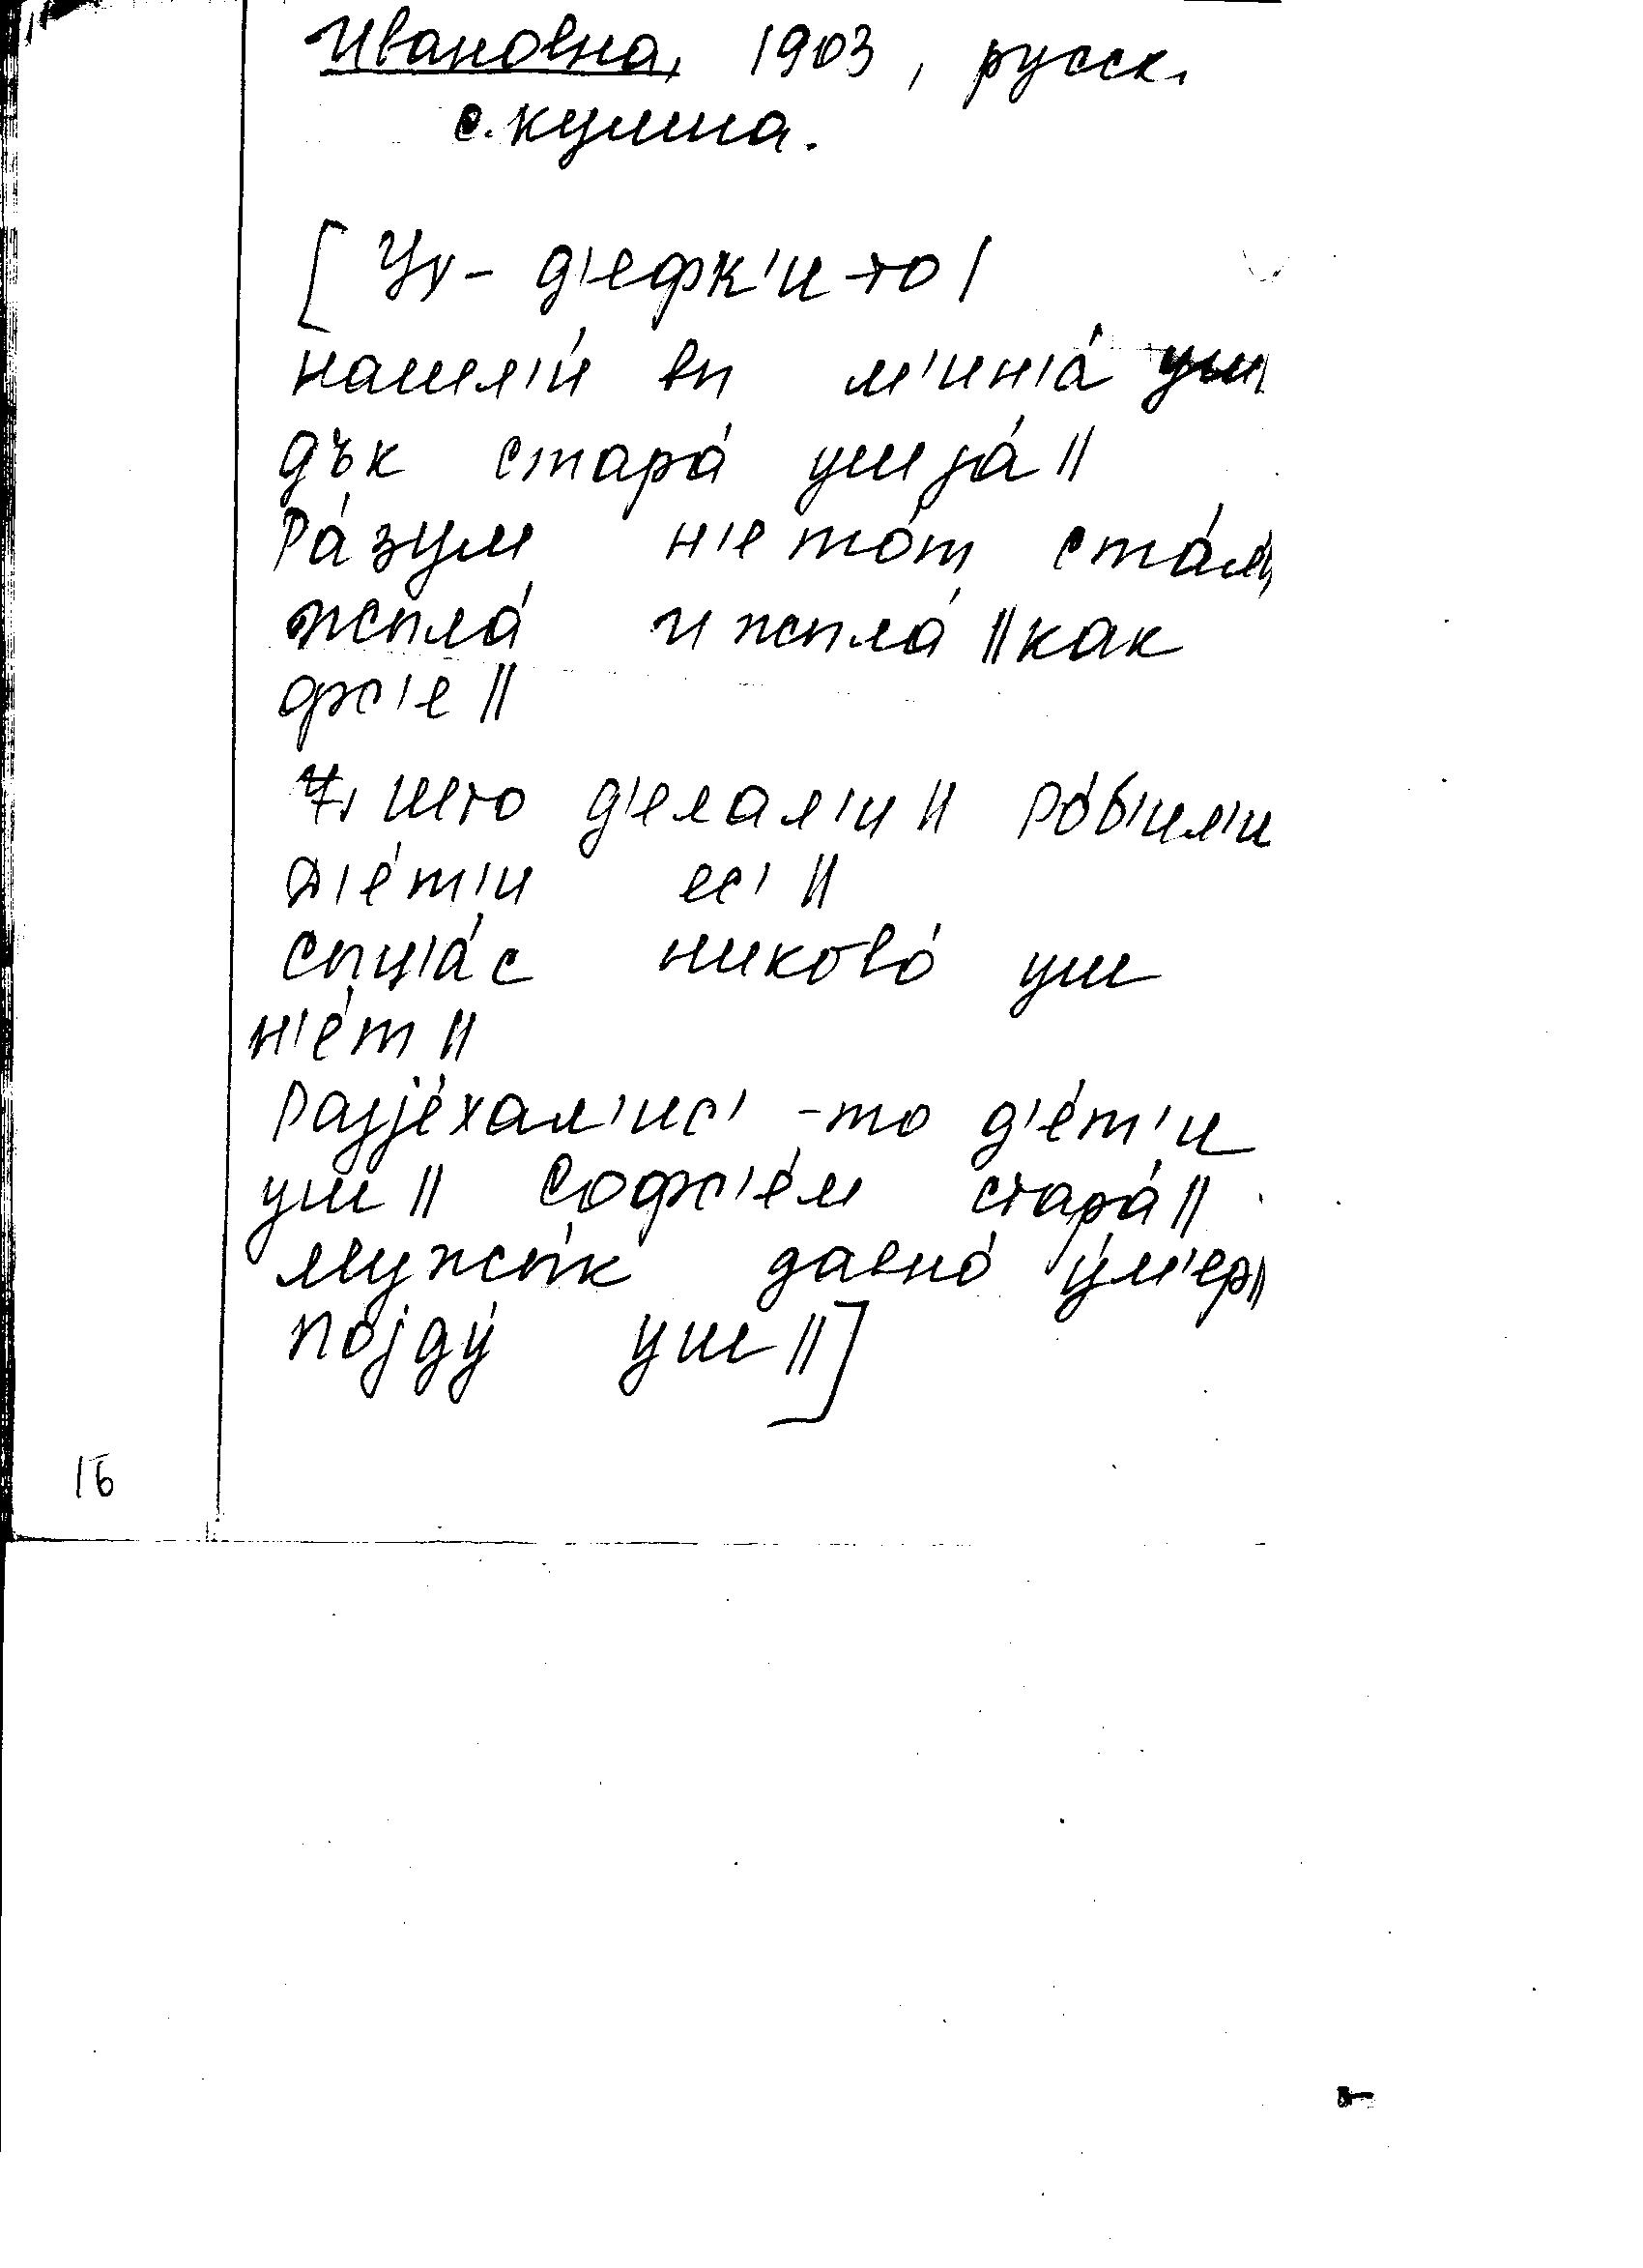 Ивановна, 1903, русск.
с. кулига.
[Ух- д'ефк'и-то |
нашл'и́ вы м'ин'а́ уш
дък стара́ уш ја́ ||
Ра́зум н'е то́т ста́л ||
жыла́ и жыла́ || как
фс'е ||
што д'елал'и || Ро́б'ил'и
Д'е́т'и ес' ||
сыц'а́с никово́ уш
н'е́т ||
Разје́хал'ис' -то д'е́т'и
уш || Софс'е́м стара́ ||
мужы́к давно́ у́м'ер ||
Појду́ уш || ]
16